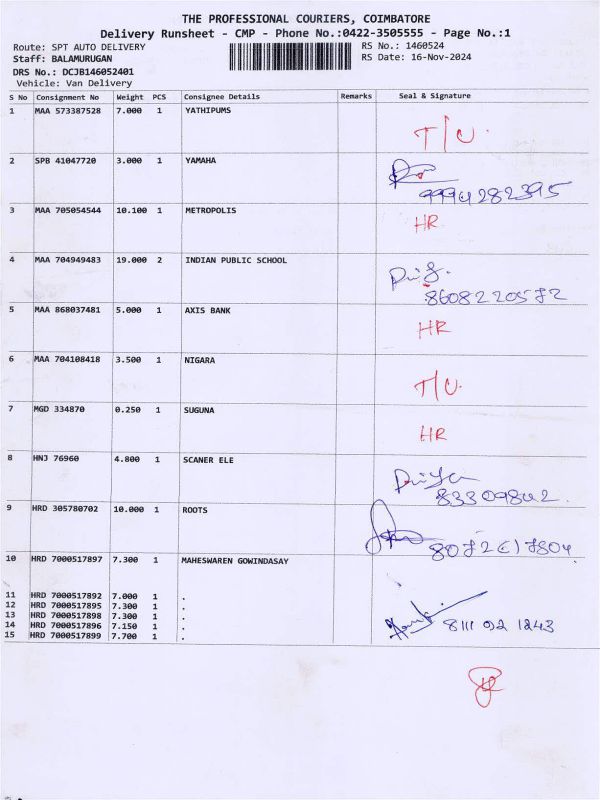 THE PROFESSIONAL COURIERS, COIMBATORE
Delivery Runsheet - CMP - Phone No.:0422-3505555 - Page No.:1
Route: SPT AUTO DELIVERY RS No.: 1460524
Staff: BALAMURUGAN RS Date: 16-Nov-2024
DRS No.: DCJB146052401
Vehicle: Van Delivery
S No Consignment No Weight PCS Consignee Details Remarks Seal & Signature
1 MAA 573387528 7.000 1 YATHIPUMS
T/C.
2 SPB 41047720 3.000 1 YAMAHA
9994282395
3 MAA 705054544 10.100 1 METROPOLIS
HR
4 MAA 704949483 19.000 2 INDIAN PUBLIC SCHOOL
8608220572
5 MAA 868037481 5.000 1 AXIS BANK
HR
6 MAA 704108418 3.500 1 NIGARA
T/C.
7 MGD 334870 0.250 1 SUGUNA
HR
8 HNJ 76960 4.800 1 SCANER ELE
9 HRD 305780702 10.000 1 ROOTS
10 HRD 7000517897 7.300 1 MAHESWAREN GOWINDASAY
11 HRD 7000517892 7.000 1 .
12 HRD 7000517895 7.300 1 .
13 HRD 7000517898 7.300 1 .
14 HRD 7000517896 7.150 1 .
15 HRD 7000517899 7.700 1 .
8111 021243